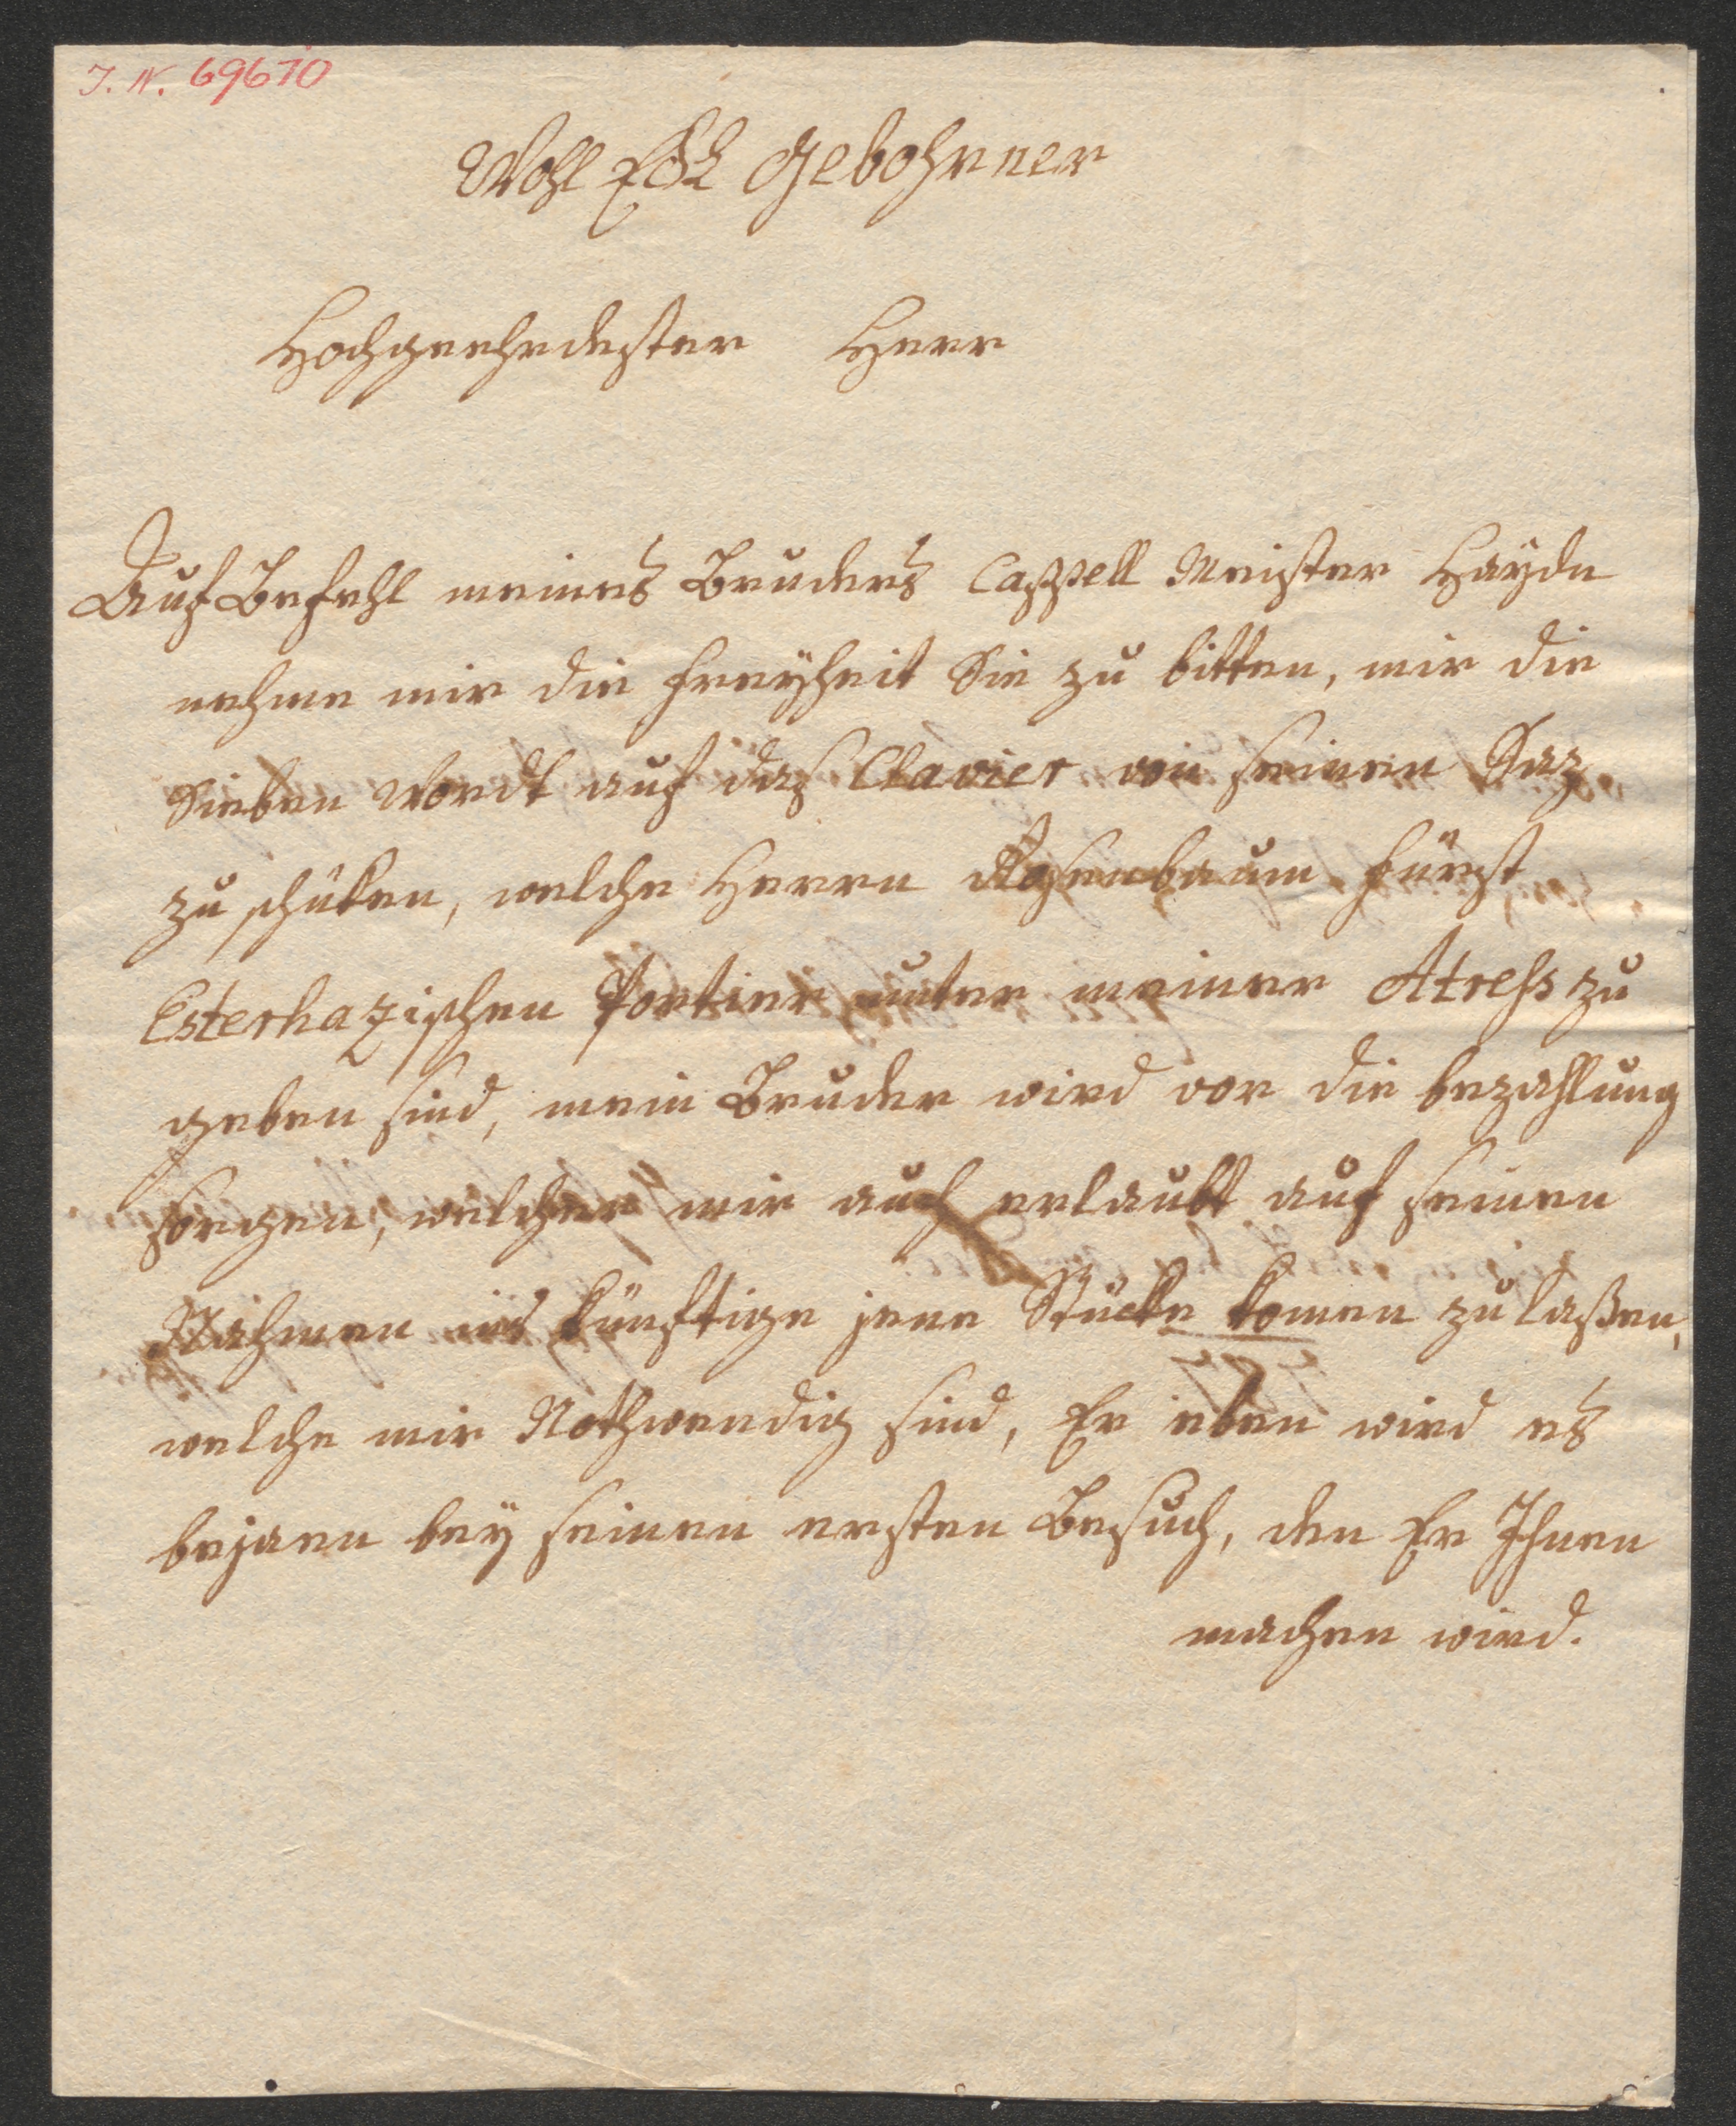 J. N. 69670
Wohl Edl Gebohrner
Hochgeehrdester Herr
Auf Befehl meines Bruders Cappell Meister Haydn
nehme mir die Freyheit Sie zu bitten, mir die
Sieben Wordt auf das Clavier von seinen Saz
zu schüken, welche Herrn Rosenbaum Fürst
Esterhazischen Portier unter meiner Atress zu
geben sind, mein Bruder wird vor die bezahlung
sorgen, welcher mir auch erlaubt auf seinen
Nahmen ins künftige jene Stücke komen zu laßen,
welche mir Nothwendig sind, Er eben wird es
bejaen bey seinen ersten Besuch, den Er Ihnen
machen wird.